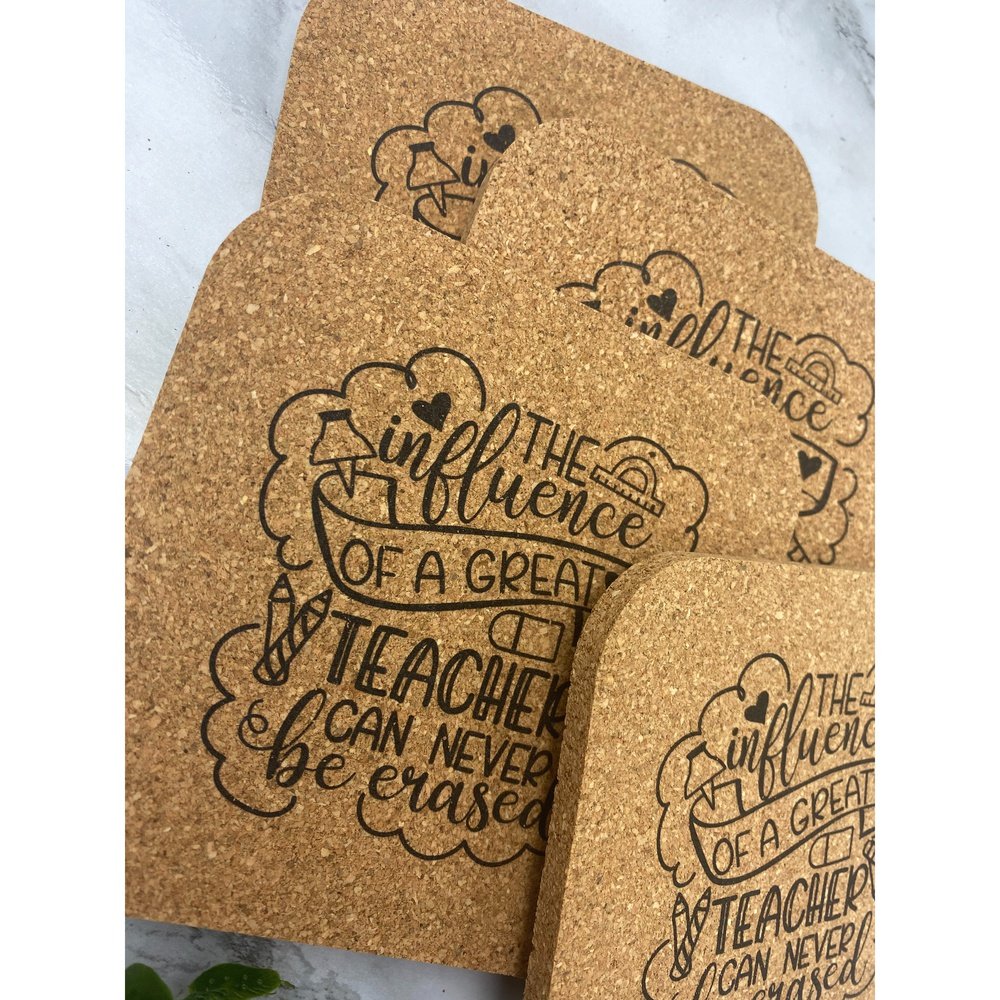 THE
influence
OF A GREAT
TEACHER
CAN NEVER
be erased
THE
influence
THE
influence
OF A GREAT
TEACHER
CAN NEVER
erased